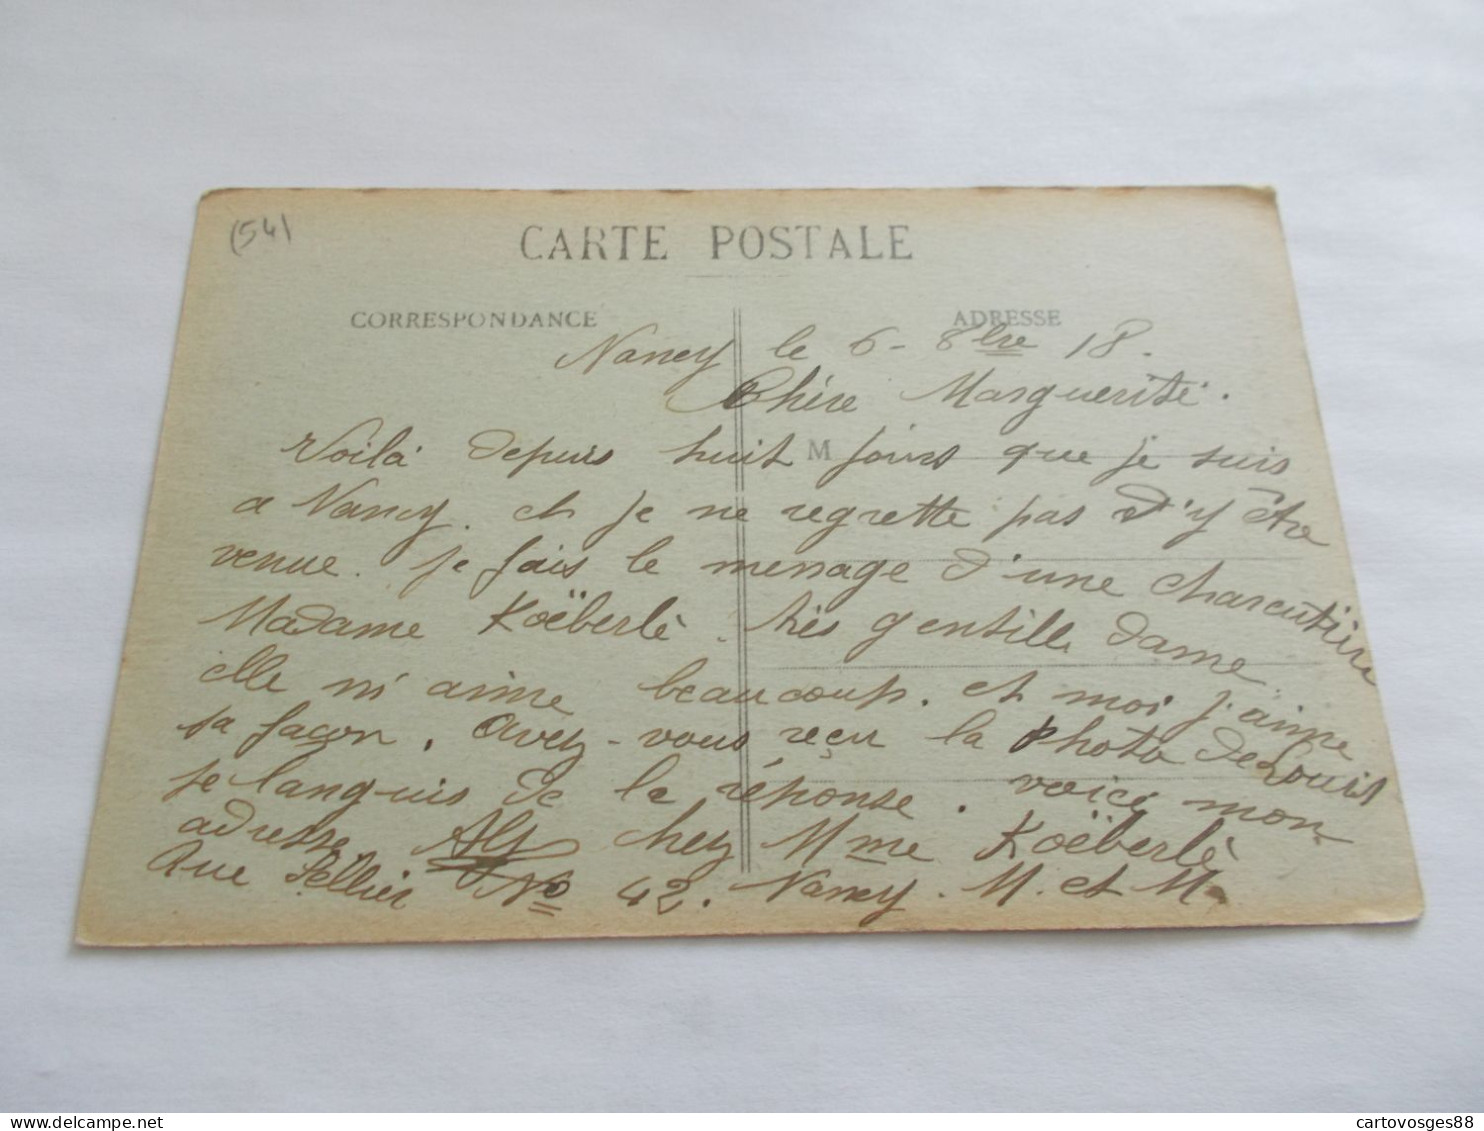 (54)
CARTE POSTALE
CORRESPONDANCE
ADRESSE
Nancy le 6 - 8bre 18.
Chère Marguerite.
M
Voilà depuis huit jours que je suis
a Nancy. et je ne regrette pas d'y être
venue. je fais le mennage d'une charcutière
Madame Koëberlè. très gentille dame
elle m'aime beaucoup. et moi j'aime
sa façon. Avez-vous reçu la Photo de Louis
je languis de la réponse. voici mon
adresse chez Mme Koëberlè
Rue Sellier No 42. Nancy. M. et M.
cartovosges88